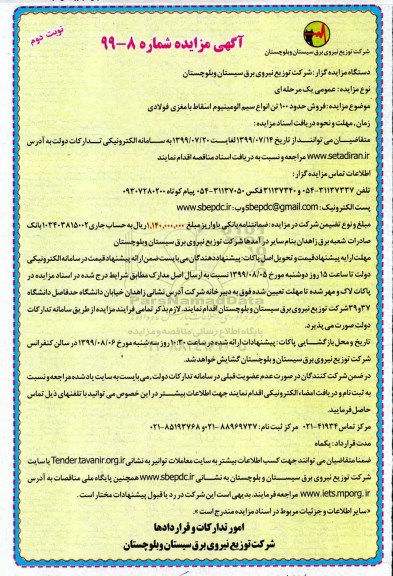 نوبت دوم
آگهی مزایده شماره ۸-۹۹
شرکت توزیع نیروی برق سیستان وبلوچستان
دستگاه مزایده گزار: شرکت توزیع نیروی برق سیستان وبلوچستان
نوع مزایده: عمومی یک مرحله ای
موضوع مزایده: فروش حدود ۱۰۰ تن انواع سیم آلومینیوم اسقاط با مغزی فولادی
زمان، مهلت و نحوه دریافت اسناد مزایده:
متقاضیان می توانند از تاریخ ۱۳۹۹/۰۷/۱۴ لغایت ۱۳۹۹/۰۷/۲۰ به سامانه الکترونیکی تدارکات دولت به آدرس
www.setadiran.ir مراجعه و نسبت به دریافت اسناد مناقصه اقدام نمایند
اطلاعات تماس مزایده گزار:
تلفن ۳۱۱۳۷۳۳۷-۰۵۴ و ۳۱۱۳۷۳۴۰ فکس ۳۱۱۳۷۰۵۰-۰۵۴ پیام کوتاه ۰۹۳۰۷۲۸۰۲۰۰
پست الکترونیک: sbepdc@gmail.com وب: www.sbepdc.ir
مبلغ و نوع تضمین شرکت در مزایده: ضمانتنامه بانکی یا واریز مبلغ ۱,۱۴۰,۰۰۰,۰۰۰ ریال به حساب جاری ۰۱۰۳۴۰۳۸۱۵۰۰۲ بانک
صادرات شعبه برق زاهدان بنام سایر درآمدها شرکت توزیع نیروی برق سیستان وبلوچستان
مهلت ارایه پیشنهاد قیمت و تحویل اصل پاکات: پیشنهاد دهندگان می بایست ضمن ارائه پیشنهاد قیمت در سامانه الکترونیکی
دولت تا ساعت ۱۵ روز دوشنبه مورخ ۱۳۹۹/۰۸/۰۵ نسبت به ارسال اصل مدارک مطابق شرایط درج شده در اسناد مزایده در
پاکات لاک و مهر شده تا مهلت تعیین شده فوق به دبیرخانه شرکت آدرس نشانی زاهدان خیابان دانشگاه حدفاصل دانشگاه
۳۷ و ۳۹ شرکت توزیع نیروی برق سیستان و بلوچستان اقدام نمایند. لازم بذکر تمامی فرایند مزایده از طریق سامانه تدارکات
دولت صورت می پذیرد.
تاریخ و محل بازگشایی پاکات: پیشنهادات ارائه شده در ساعت ۱۰:۳۰ روز سه شنبه مورخ ۱۳۹۹/۰۸/۰۶ در سالن کنفرانس
شرکت توزیع نیروی برق سیستان و بلوچستان گشایش خواهد شد.
در ضمن شرکت کنندگان در صورت عدم عضویت قبلی در سامانه تدارکات دولت، می بایست به سایت یاد شده مراجعه و نسبت
به ثبت نام و دریافت امضاء الکترونیکی اقدام نمایند جهت اطلاعات بیشتر در این خصوص می توانید با تلفنهای ذیل تماس
حاصل فرمایید.
مرکز تماس ۴۱۹۳۴-۰۲۱ مرکز ثبت نام: ۸۸۹۶۹۷۳۷-۰۲۱ و ۸۵۱۹۳۷۶۸-۰۲۱
مدت قرارداد: یکماه
ضمنا متقاضیان می توانند جهت کسب اطلاعات بیشتر به سایت معاملات توانیر به نشانی Tender.tavanir.org.ir یا سایت
شرکت توزیع نیروی برق سیستان و بلوچستان به نشانی www.sbepdc.ir همچنین پایگاه ملی مناقصات به آدرس
www.iets.mporg.ir مراجعه فرمایند. بدیهی است این شرکت در رد یا قبول پیشنهادات مختار است.
«سایر اطلاعات و جزئیات مربوط در اسناد مزایده مندرج است.»
امور تدارکات و قراردادها
شرکت توزیع نیروی برق سیستان وبلوچستان